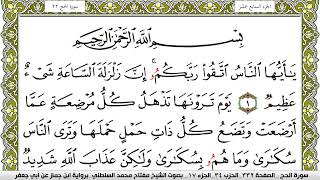 الجزء السابع عشر
سورة الحج ٢٢
بِسْمِ اللَّهِ الرَّحْمَٰنِ الرَّحِيمِ
يَٰٓأَيُّهَا النَّاسُ اتَّقُوا رَبَّكُمُۥٓ إِنَّ زَلْزَلَةَ السَّاعَةِ شَىْءٌ
عَظِيمٌ ١ يَوْمَ تَرَوْنَهَا تَذْهَلُ كُلُّ مُرْضِعَةٍ عَمَّا
أَرْضَعَتْ وَتَضَعُ كُلُّ ذَاتِ حَمْلٍ حَمْلَهَا وَتَرَى النَّاسَ
سُكَٰرَىٰ وَمَا هُمُۥ بِسُكَٰرَىٰ وَلَٰكِنَّ عَذَابَ اللَّهِ شَدِيدٌ
سورة الحج . الصفحة ٣٣٢ . الحزب ٣٤ . الجزء ١٧ . بصوت الشيخ مفتاح محمد السلطني . برواية ابن جماز عن أبي جعفر